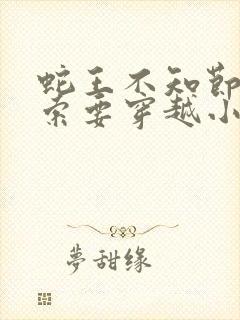 蛇王不知節
索要穿越小
夢甜缘